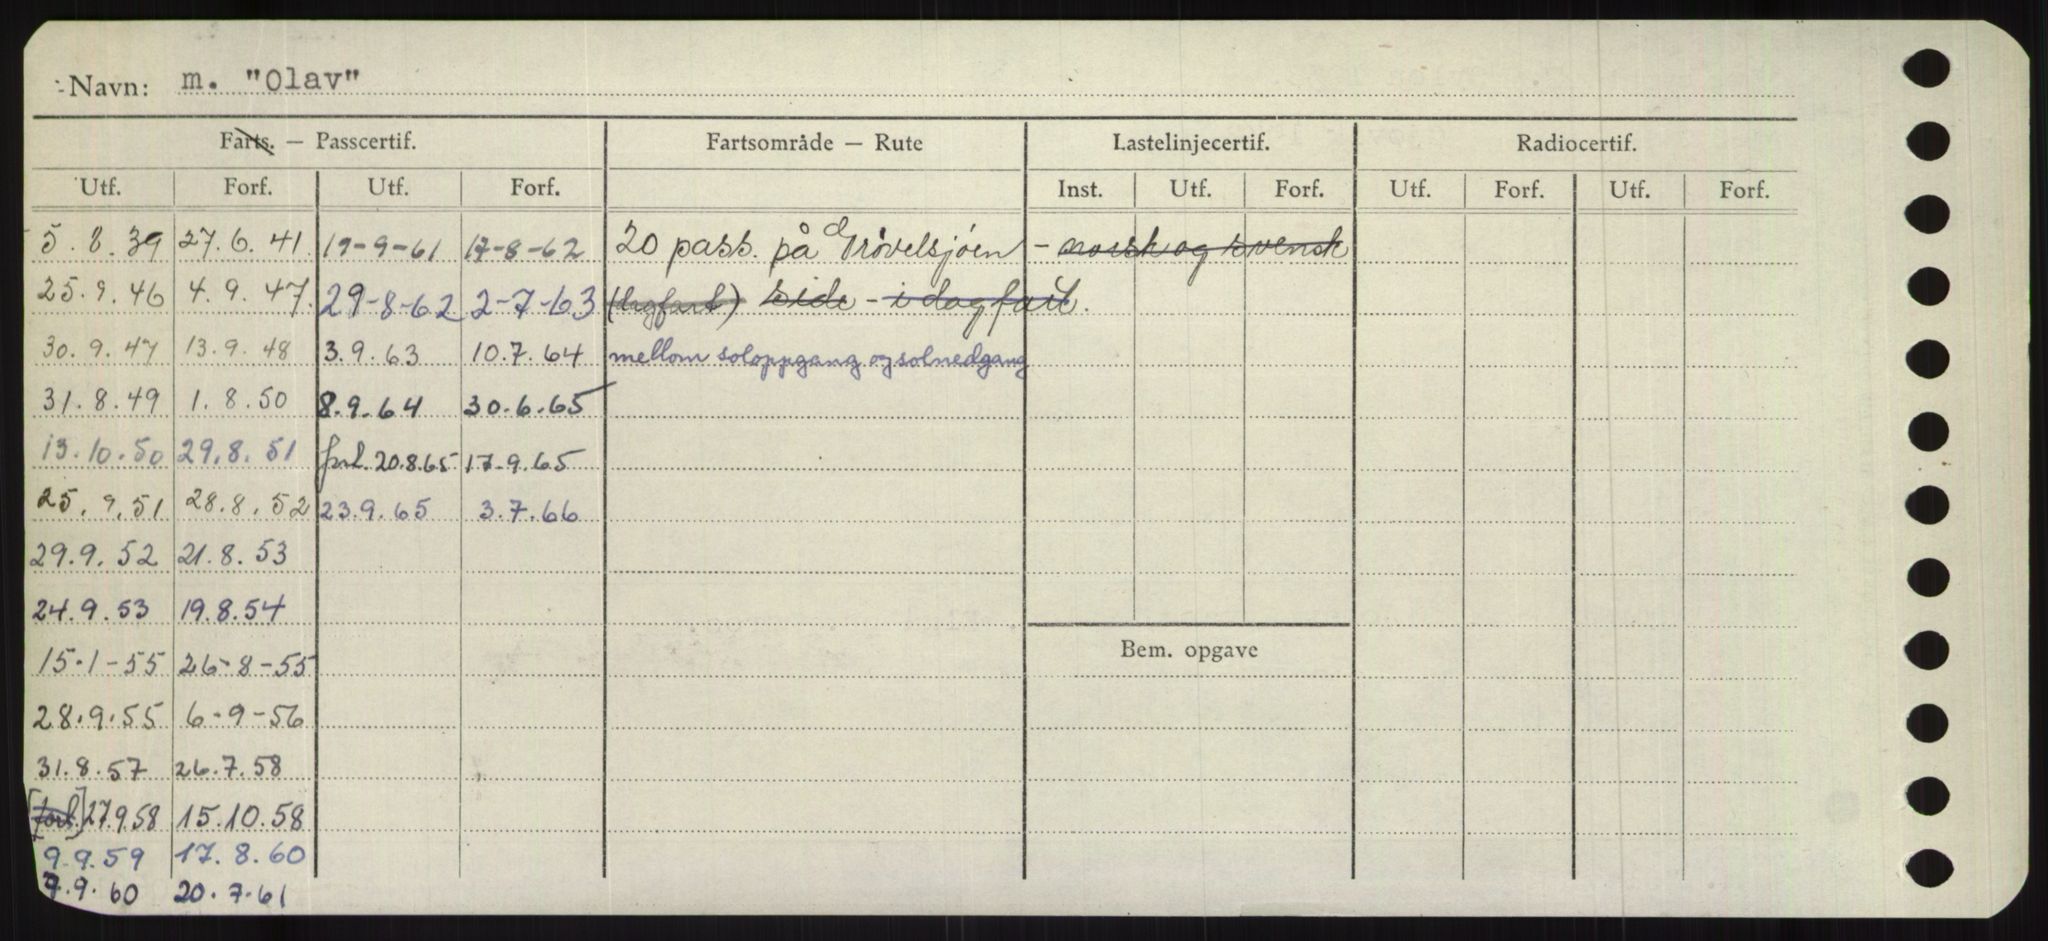 Navn: m. "Olav"
Farts. — Passcertif. Fartsområde — Rute Lastelinjecertif. Radiocertif.
Utf. Forf. Utf. Forf. Inst. Utf. Forf. Utf. Forf. Utf. Forf.
5.8.39 27.6.41 19-9-61 17-8-62 20 pass. på Grövelsjöen - norsk og svensk
25.9.46 4.9.47. 29-8-62 2-7-63 (dagfart) side - i dagfart.
30.9.47 13.9.48 3.9.63 10.7.64 mellom soloppgang og solnedgang
31.8.49 1.8.50 8.9.64 30.6.65
13.10.50 29.8.51 forl. 20.8.65 17.9.65
25.9.51 28.8.52 23.9.65 3.7.66
29.9.52 21.8.53
24.9.53 19.8.54
15-1-55 26-8-55
Bem. opgave
28.9.55 6-9-56
31.8.57 26.7.58
[forl.] 27.9.58 15.10.58
9.9.59 17.8.60
7.9.60 20.7.61